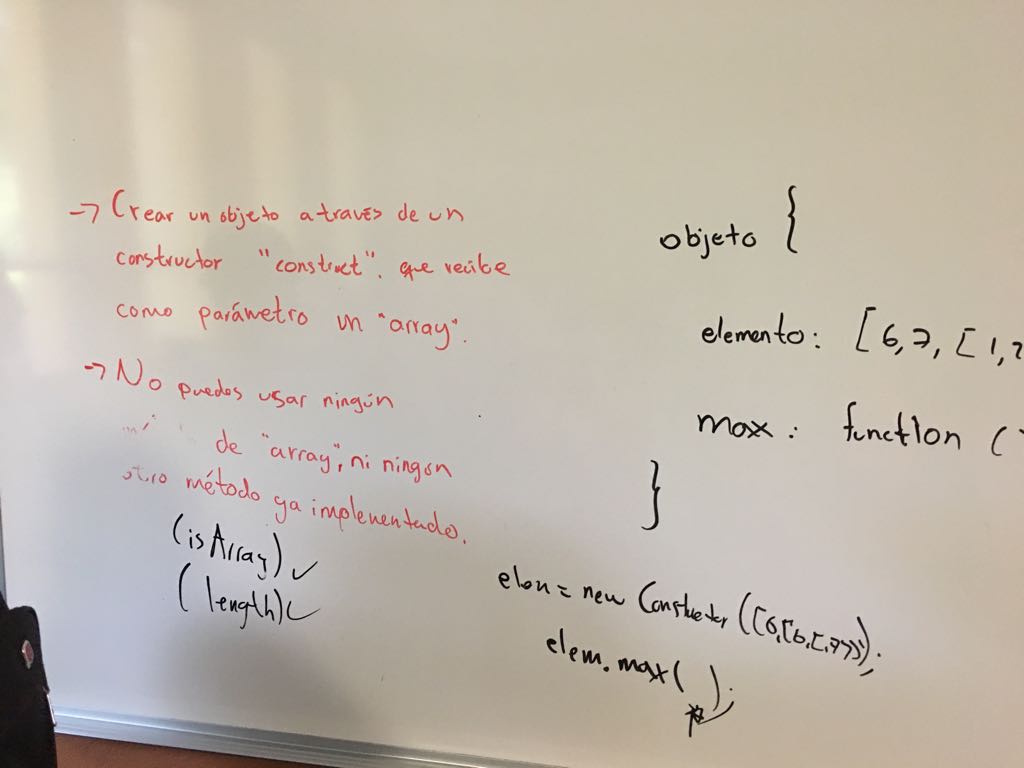 → Crear un objeto a través de un
constructor "construct". que recibe
como parámetro un "array".
→ No puedes usar ningún
de "array", ni ningún
otro método ya implementado.
(isArray) ✓
(length) ✓
objeto {
elemento: [6,7, [1,
max: function (
}
= new
elem.max( );